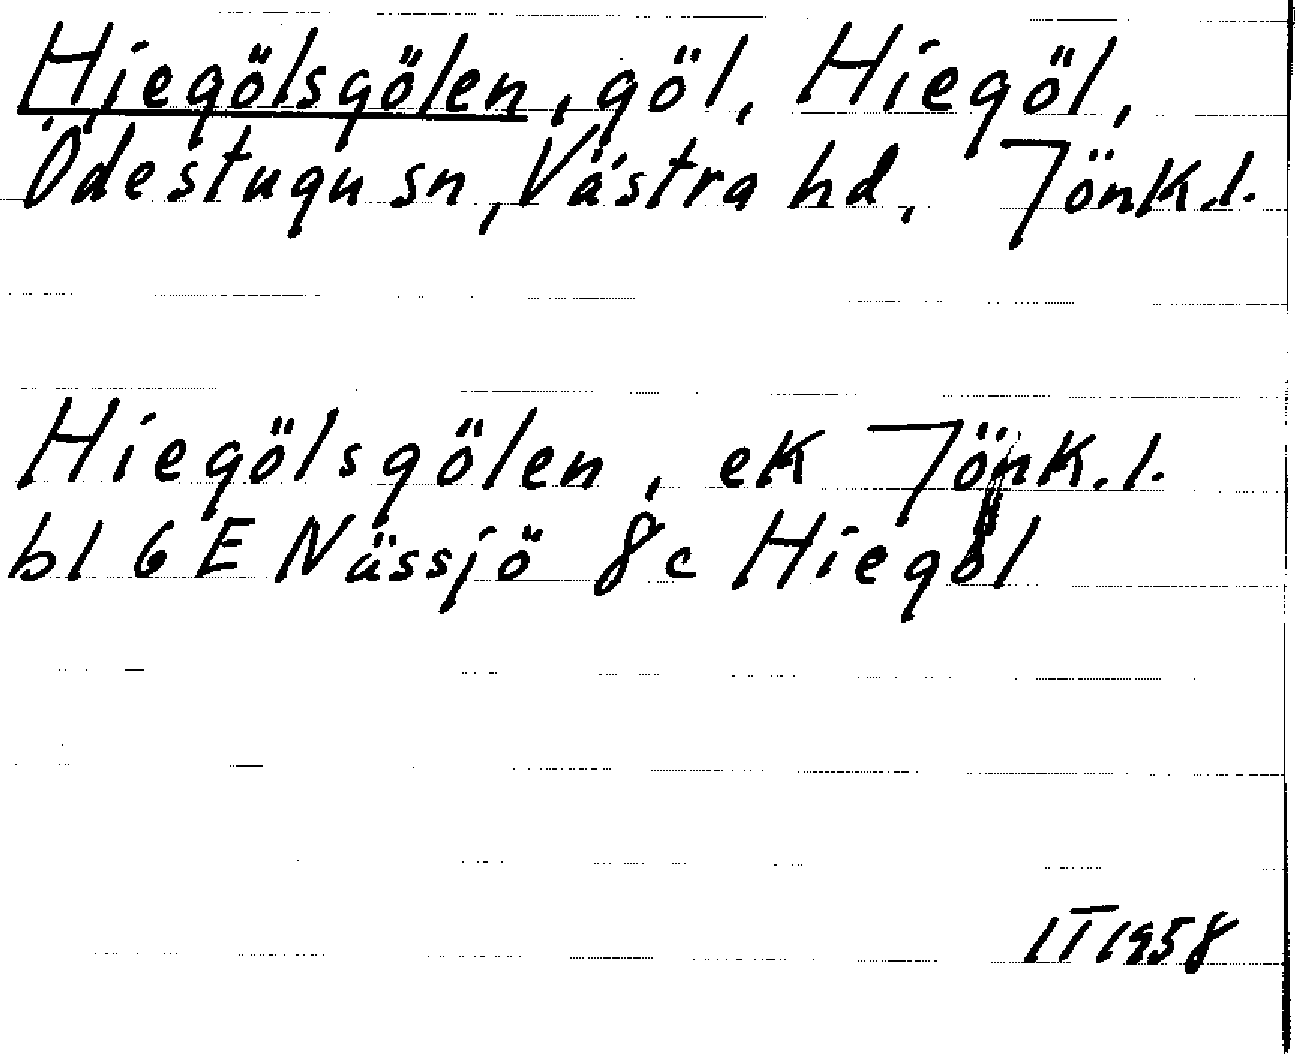 Hjegölsgölen, göl, Hiegöl,
Ödestugu sn, Västra hd, Jönk.l.
Hiegölsgölen, ek Jönk.l.
bl 6E Nässjö 8c Hiegöl
IT 1958